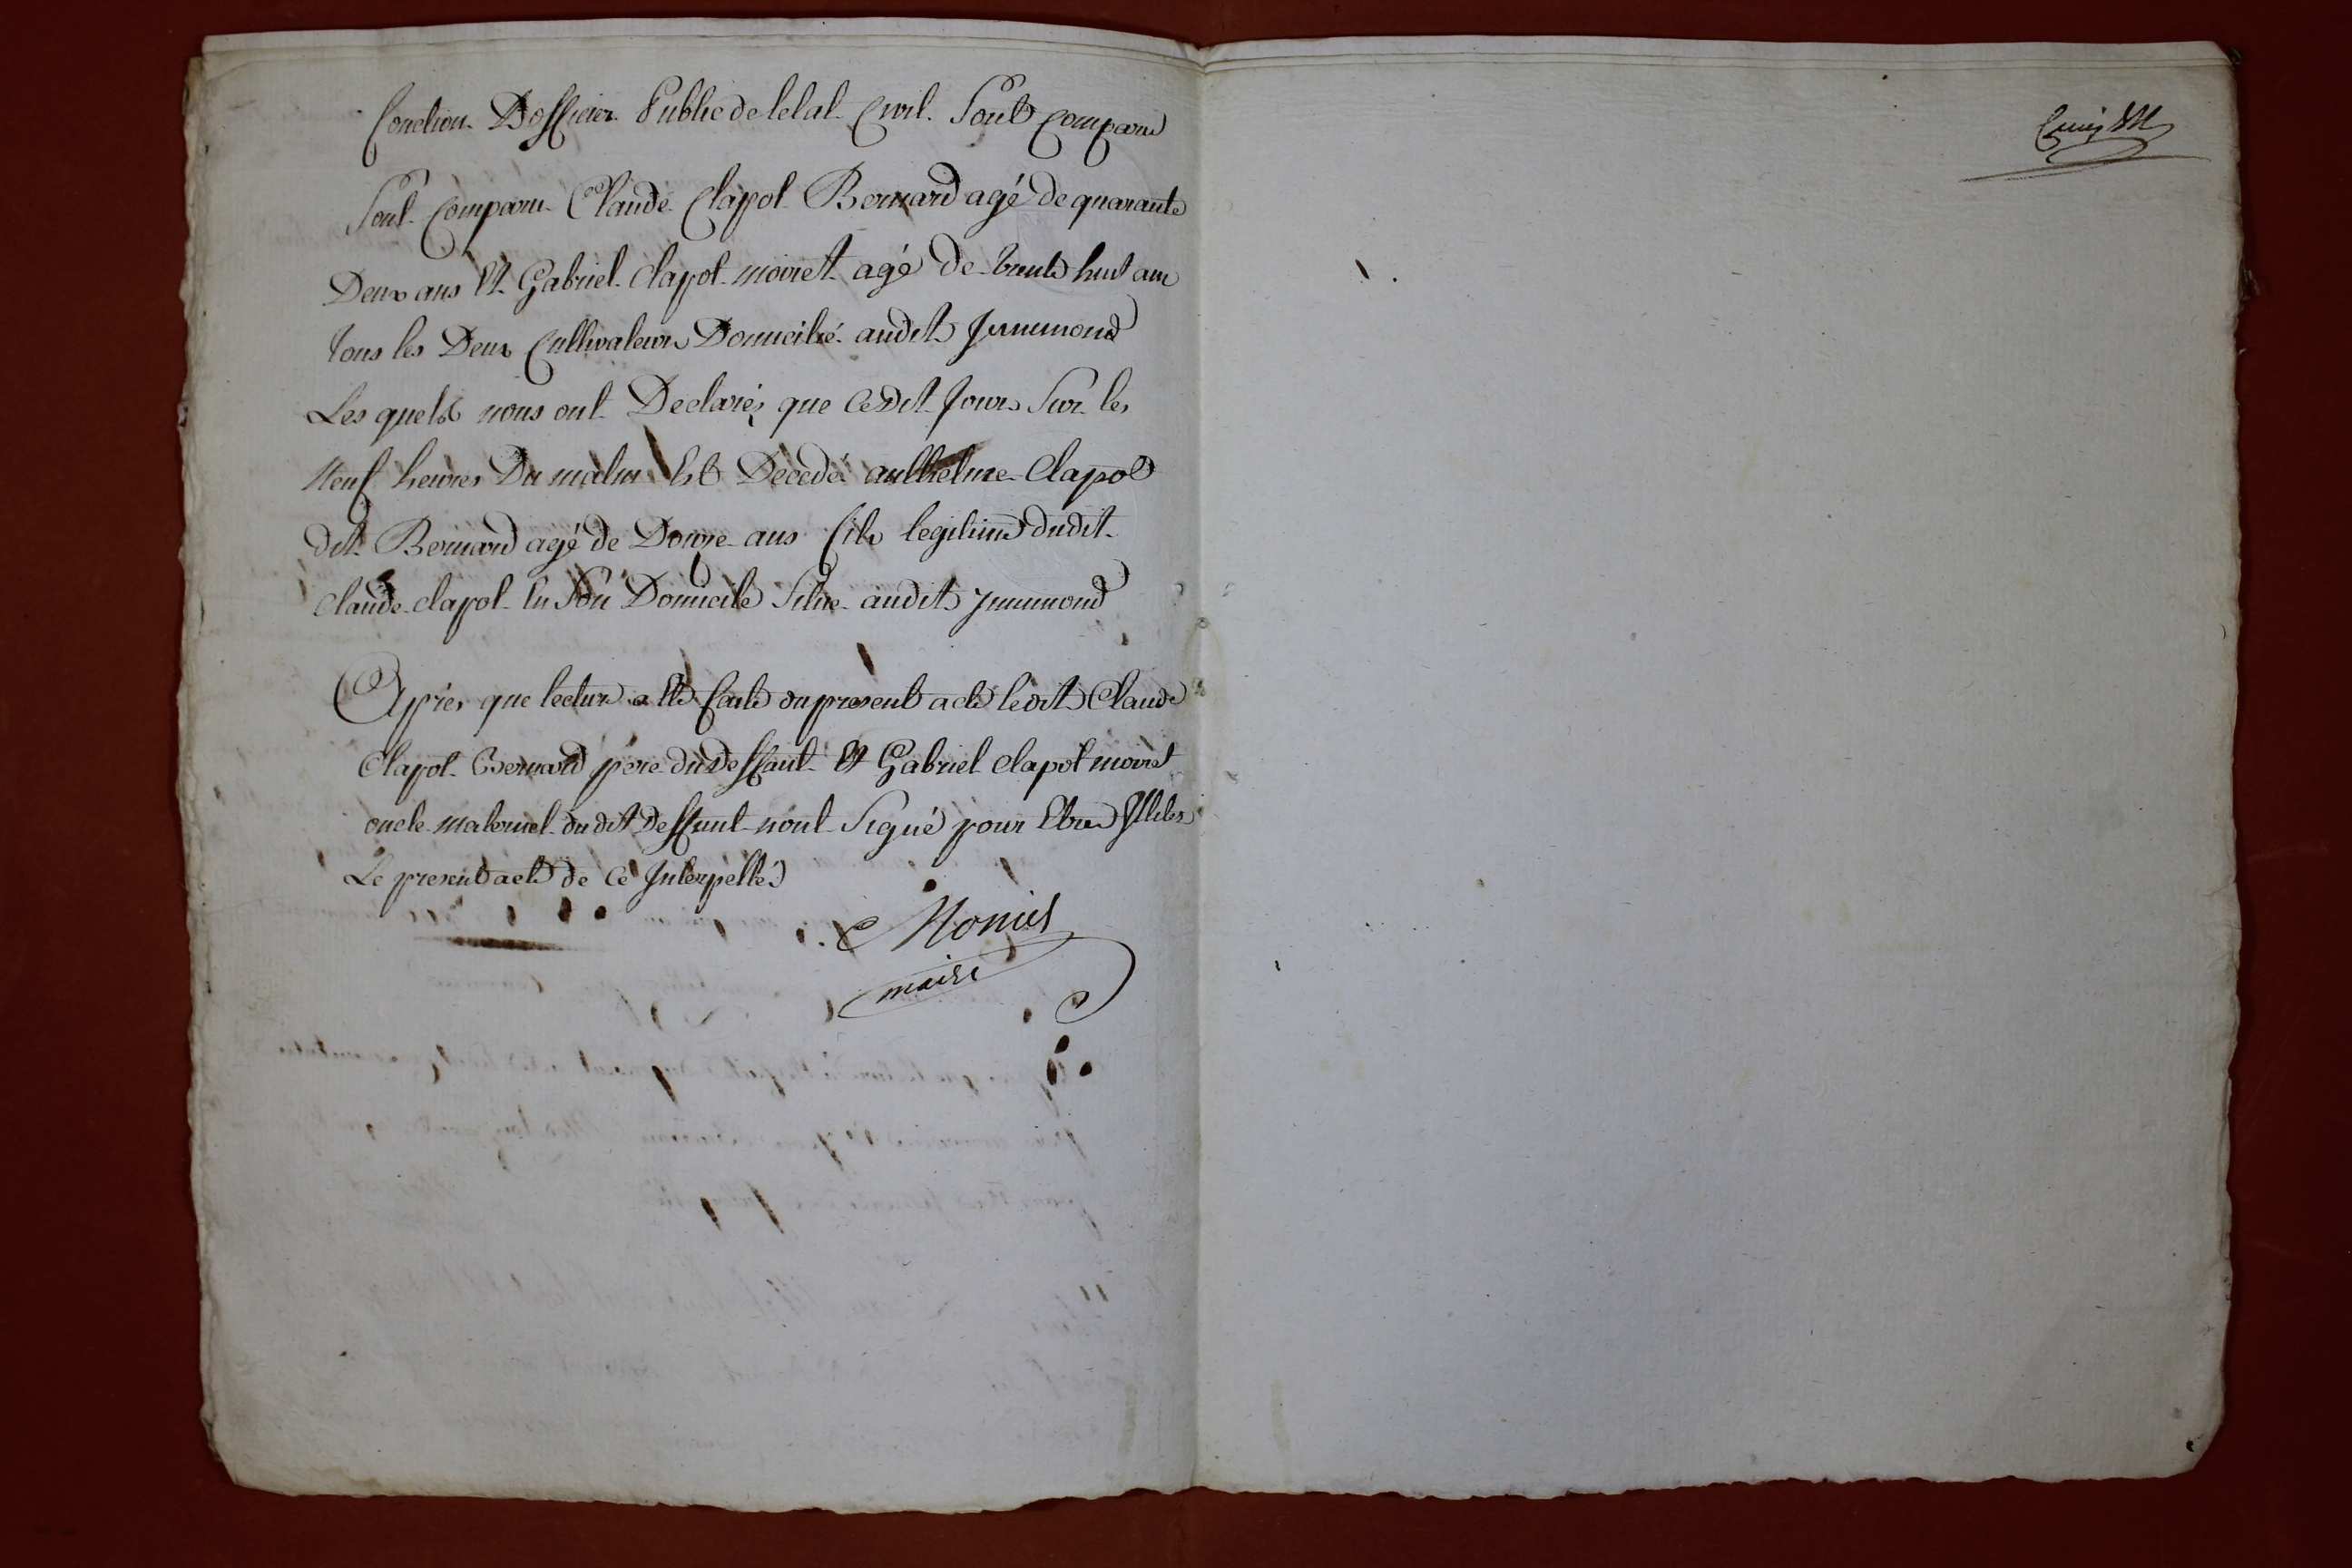 fonction D'officier Public de letat Civil. Sont Comparu
Sont Comparu Claude Clapot Bernard agé de quarante
Deux ans Et Gabriel Clapot moiret agé de trente huit ans
tous les Deux Cultivateurs Domicilié audit Jnnimond
Les quels nous ont Declarés que Cedit Jours Sur les
Neuf heures Du matin Est Decedé anthelme Clapot
dit Bernard agé de Douze ans fils legitime dudit
Claude Clapot En Son Domicile Situé audit ynnimond
Après que lecture a Eté faite du present acte ledit Claude
Clapot Bernard pere du Deffunt Et Gabriel Clapot moiret
oncle maternel du dit Deffunt nont Signé pour Etre Jlliteré
Le present acte de Ce Jnterpellés
maire